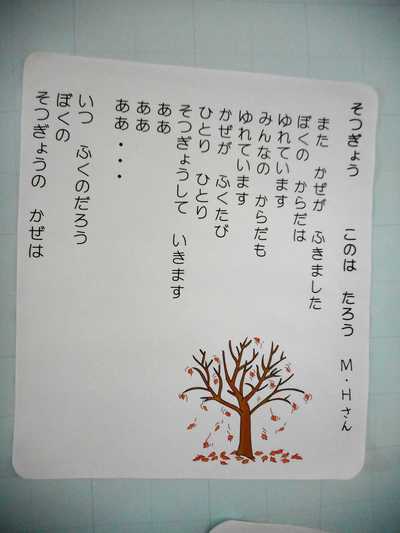 そつぎょう　このは　たろう　Ｍ・Ｈさん
また　かぜが　ふきました
ぼくの　からだは
ゆれています
みんなの　からだも
ゆれています
かぜが　ふくたび
ひとり　ひとり
そつぎょうして　いきます
ああ
ああ
ああ・・・
いつ　ふくのだろう
ぼくの
そつぎょうの　かぜは